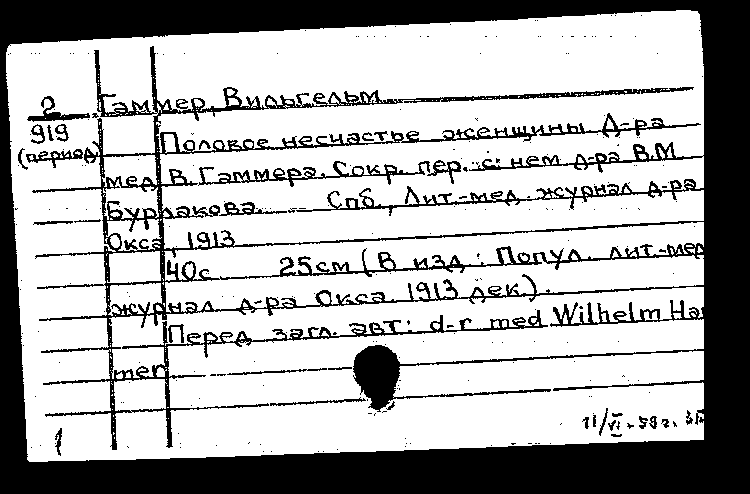 2 Гаммер, Вильгельм
919 Половое несчастье женщины Д-ра
(период)
мед. В. Гаммера. Сокр. пер. с нем д-ра В.М
Бурлакова. — Спб., Лит.-мед. журнал д-ра
Окса, 1913
40с 25см (В изд: Попул. лит.-мед
журнал д-ра Окса. 1913 дек).
Перед загл. авт: d-r med Wilhelm Ham
mer
11/VI-59г.
1